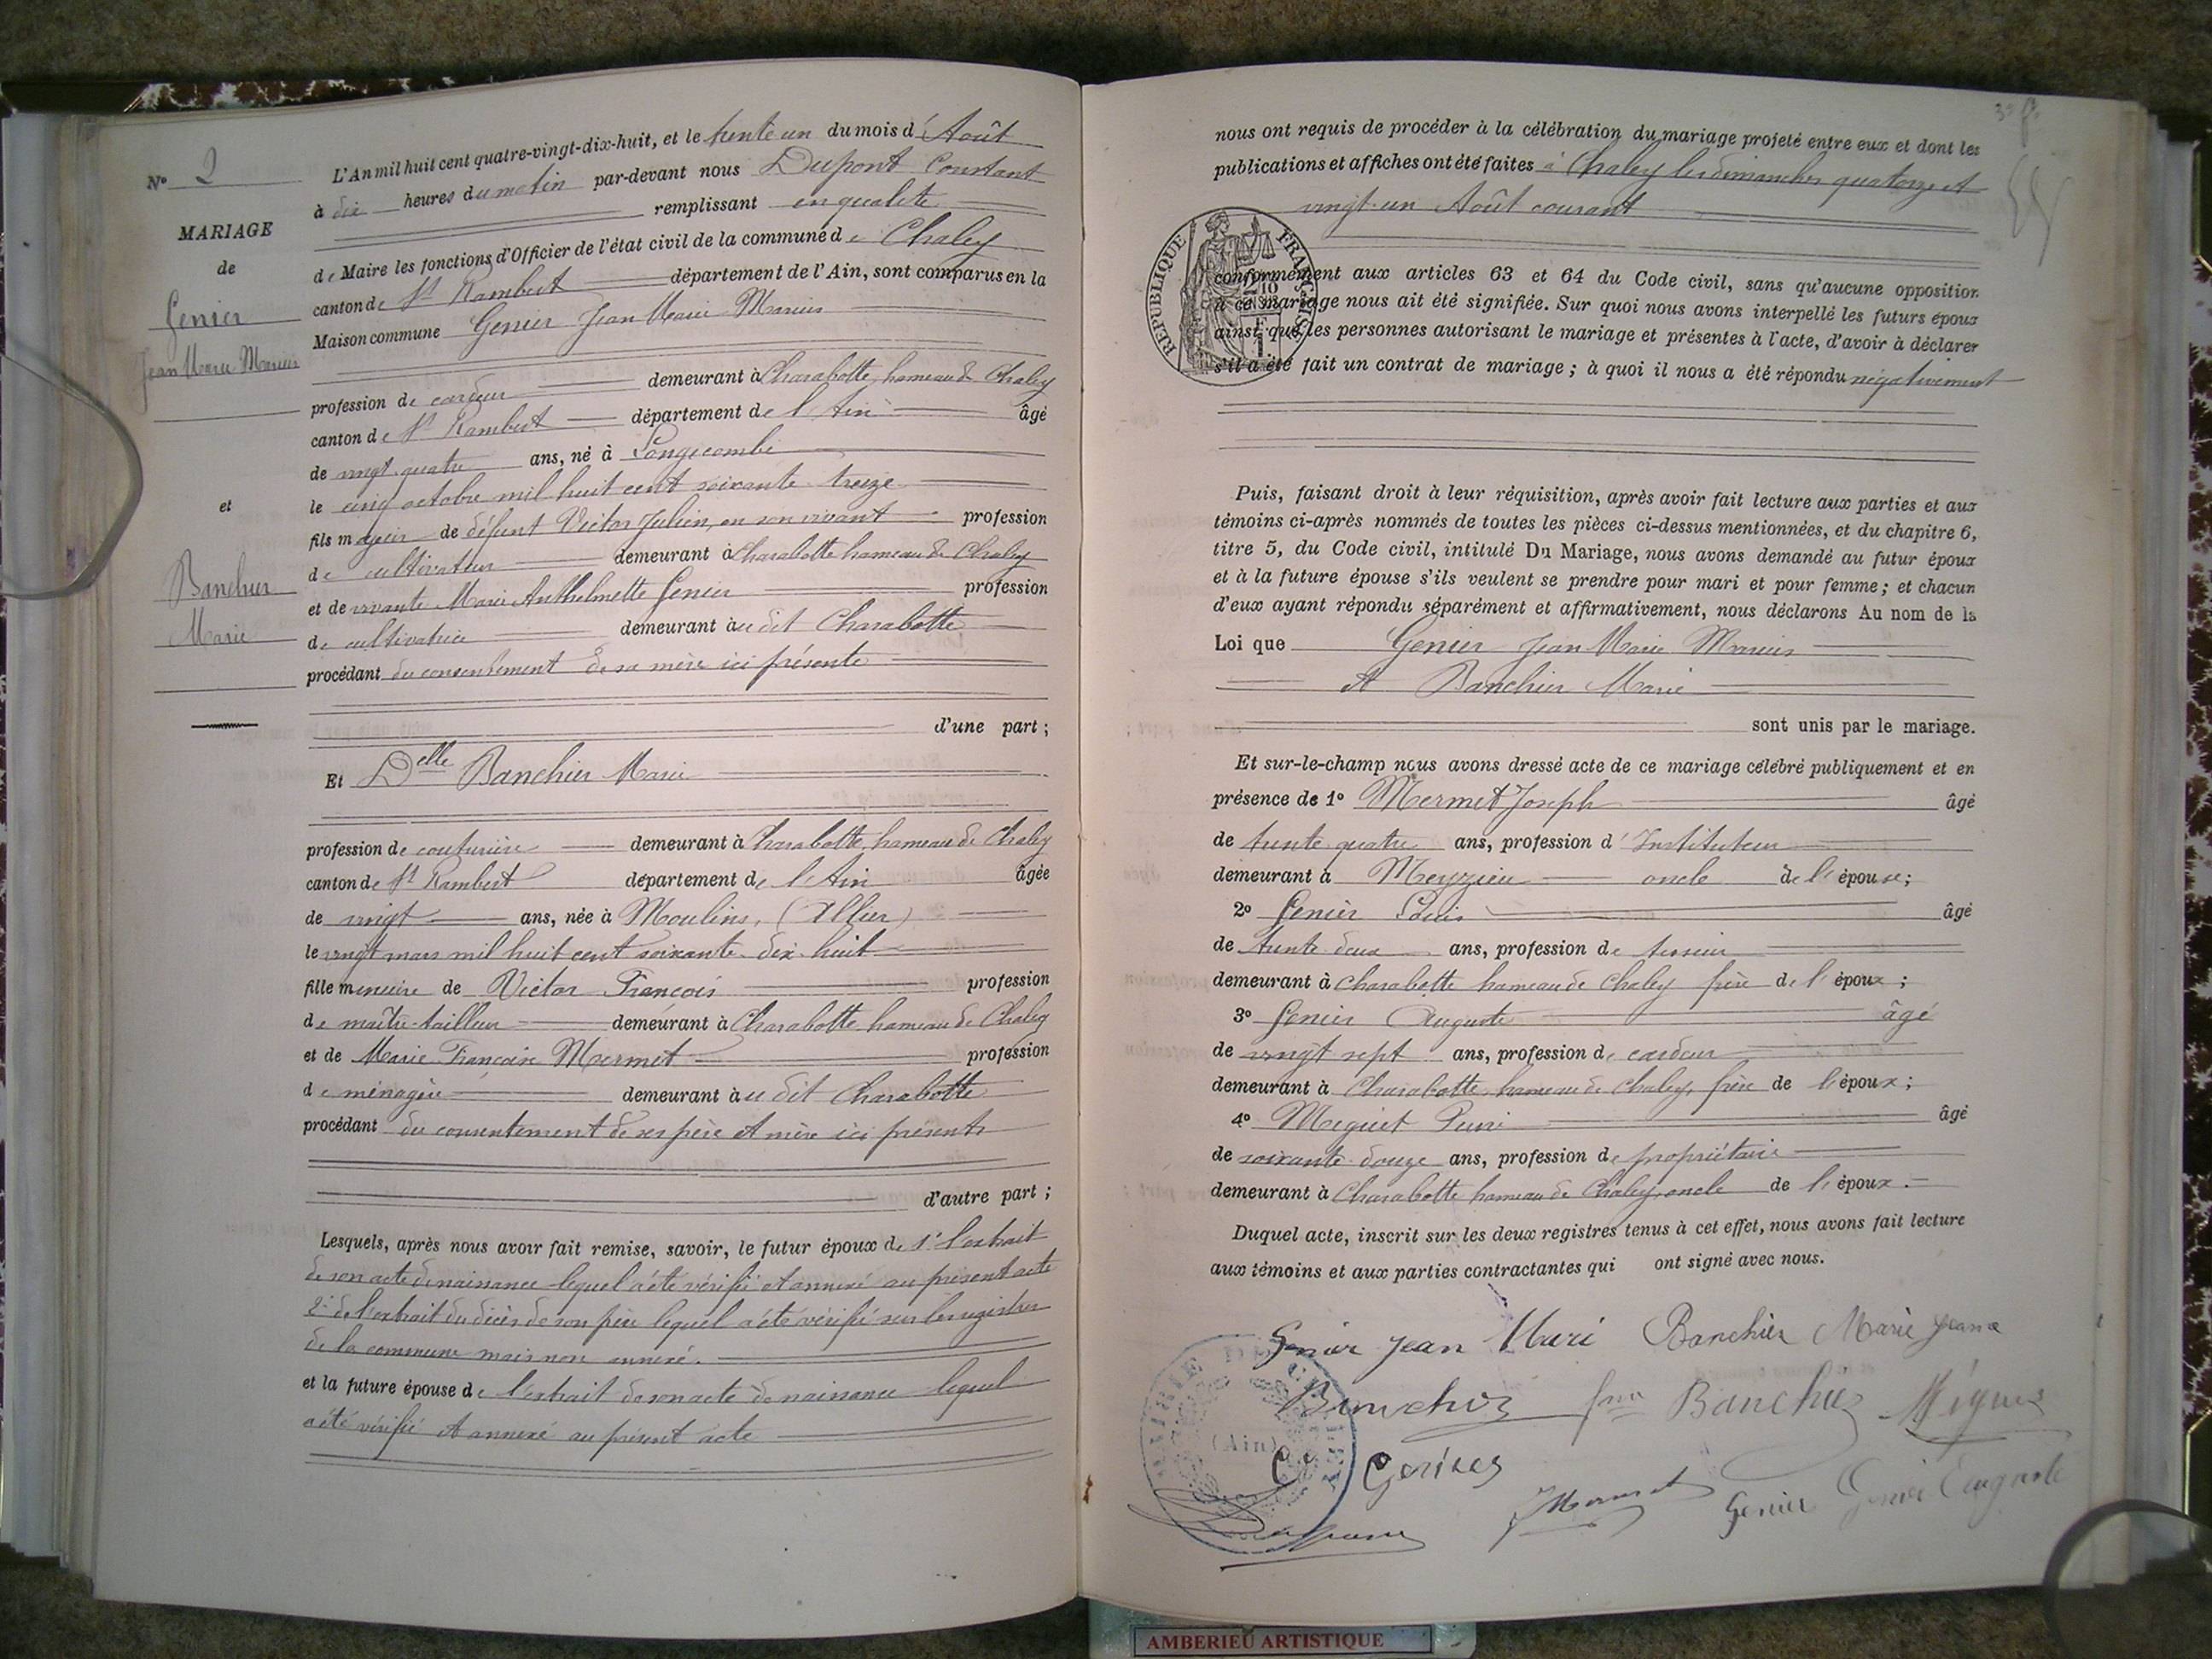 N° 2
MARIAGE
de
Genier
Jean Marie Marius
et
Banchier
Marie
L'An mil huit cent quatre-vingt-dix-huit, et le trente un du mois d'Août
à dix heures du matin par-devant nous Dupont Constant
remplissant en qualité
de Maire les fonctions d'Officier de l'état civil de la commune de Chaley
canton de St Rambert département de l'Ain, sont comparus en la
Maison commune Genier Jean Marie Marius
profession de cardeur demeurant à Charabotte, hameau de Chaley
canton de St Rambert département de l'Ain âgé
de vingt quatre ans, né à Longecombe
le cinq octobre mil huit cent soixante treize
fils majeur de défunt Victor Julien, en son vivant profession
de cultivateur demeurant à Charabotte hameau de Chaley
et de vivante Marie Anthelmette Genier profession
de cultivatrice demeurant au dit Charabotte
procédant du consentement de sa mère ici présente
d'une part ;
Et Delle Banchier Marie
profession de couturière demeurant à Charabotte, hameau de Chaley
canton de St Rambert département de l'Ain âgée
de vingt ans, née à Moulins, (Allier)
le vingt mars mil huit cent soixante dix huit
fille mineure de Victor François profession
de maître-tailleur demeurant à Charabotte, hameau de Chaley
et de Marie Françoise Mermet profession
de ménagère demeurant au dit Charabotte
procédant du consentement de ses père et mère ici présents
d'autre part ;
Lesquels, après nous avoir fait remise, savoir, le futur époux de 1° l'extrait
de son acte de naissance lequel a été vérifié et annexé au présent acte
2° de l'extrait du décès de son père lequel a été vérifié sur les registres
de la commune mais non annexé.
et la future épouse de l'extrait de son acte de naissance lequel
a été vérifié et annexé au présent acte
nous ont requis de procéder à la célébration du mariage projeté entre eux et dont les
publications et affiches ont été faites à Chaley les dimanches quatorze et
vingt-un Août courant
RÉPUBLIQUE FRANÇAISE
conformément aux articles 63 et 64 du Code civil, sans qu'aucune opposition
à ce mariage nous ait été signifiée. Sur quoi nous avons interpellé les futurs époux
ainsi que les personnes autorisant le mariage et présentes à l'acte, d'avoir à déclarer
s'il a été fait un contrat de mariage ; à quoi il nous a été répondu négativement
Puis, faisant droit à leur réquisition, après avoir fait lecture aux parties et aux
témoins ci-après nommés de toutes les pièces ci-dessus mentionnées, et du chapitre 6,
titre 5, du Code civil, intitulé Du Mariage, nous avons demandé au futur époux
et à la future épouse s'ils veulent se prendre pour mari et pour femme ; et chacun
d'eux ayant répondu séparément et affirmativement, nous déclarons Au nom de la
Loi que Genier Jean Marie Marius
et Banchier Marie
sont unis par le mariage.
Et sur-le-champ nous avons dressé acte de ce mariage célébré publiquement et en
présence de 1° Mermet Joseph âgé
de trente quatre ans, profession d'Instituteur
demeurant à Meyzieu oncle de l'épouse ;
2° Genier Louis âgé
de trente deux ans, profession de tisseur
demeurant à Charabotte hameau de Chaley frère de l'époux ;
3° Genier Auguste âgé
de vingt sept ans, profession de cardeur
demeurant à Charabotte, hameau de Chaley, frère de l'époux ;
4° Meguet Pierre âgé
de soixante douze ans, profession de propriétaire
demeurant à Charabotte hameau de Chaley, oncle de l'époux.
Duquel acte, inscrit sur les deux registres tenus à cet effet, nous avons fait lecture
aux témoins et aux parties contractantes qui ont signé avec nous.
Genier Jean Mari Banchier Marie Jeane
Banchier fme Banchier
(Ain)
JMermet Genier Genier Auguste
AMBERIEU ARTISTIQUE